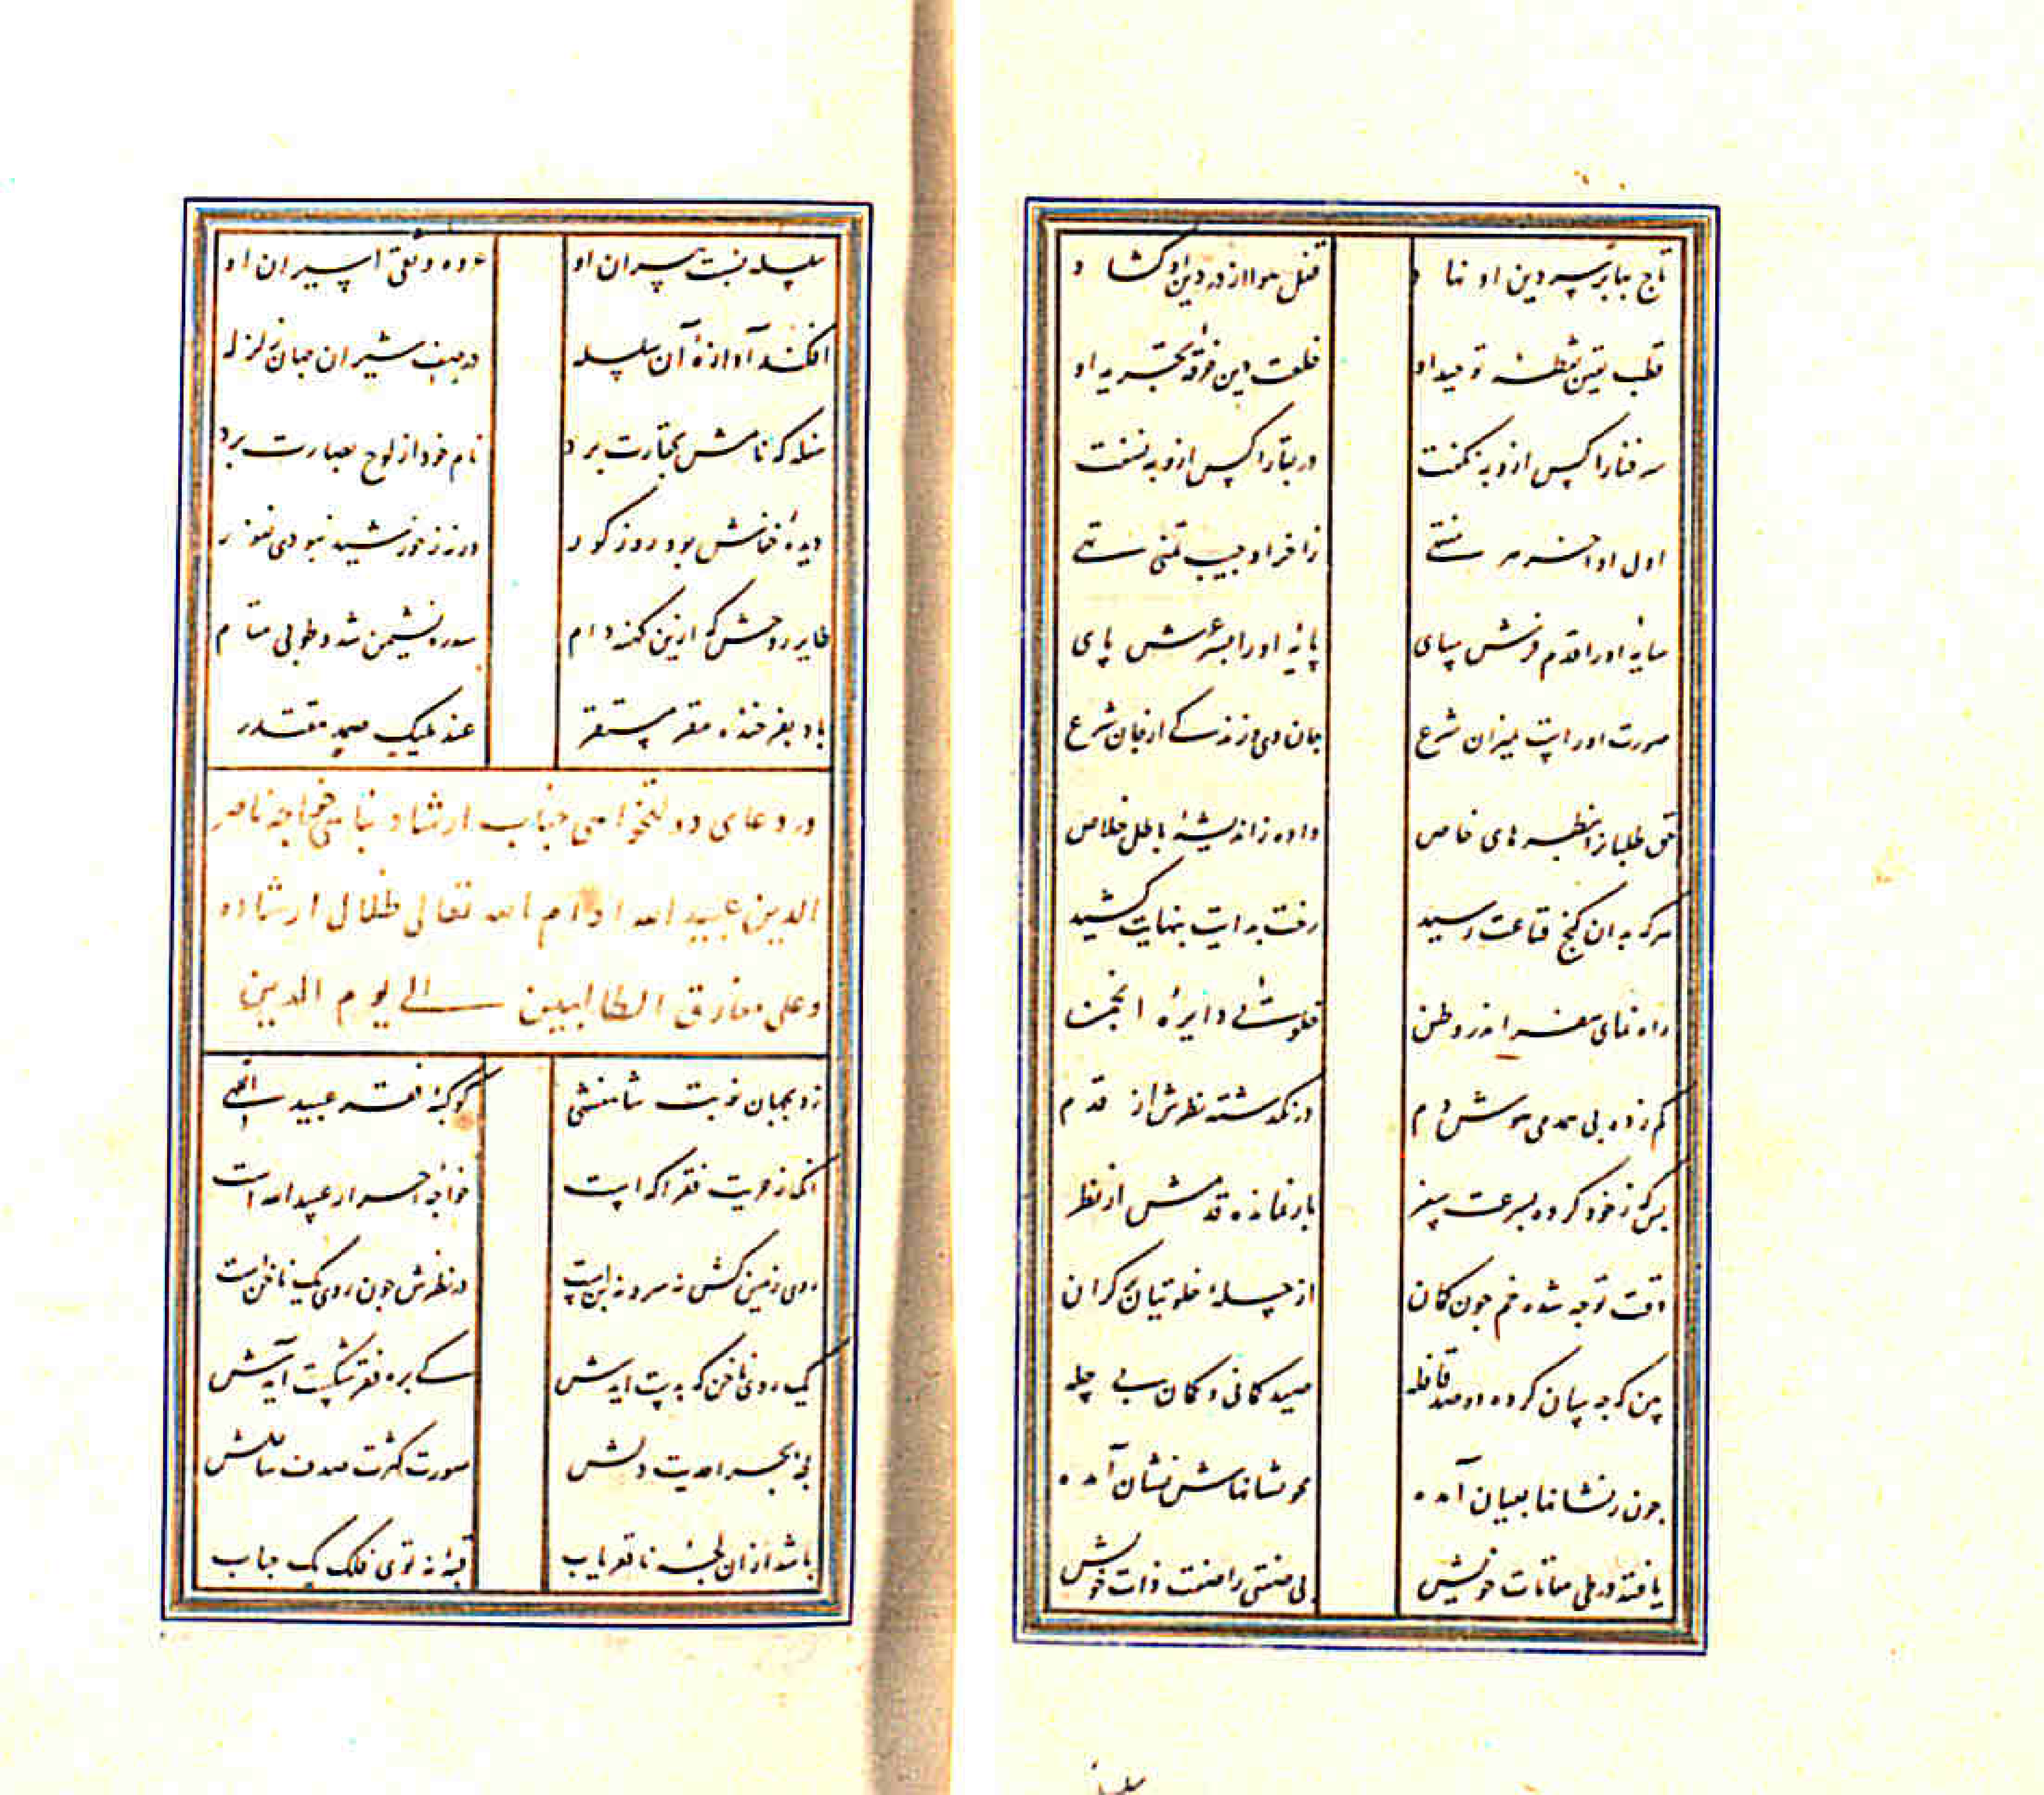 تاج بها بر سر دین او نهاد قفل هوا از در دین او گشاد
قطب یقین نقطه توحید او خلعت دین خرقه تجرید او
سر فنا را کس ازو به نگفت در بقا را کس ازو به نسفت
اول او آخر هر منتهی ز آخر او جیب تمنی تهی
سایه او را قدم فرش سای پایه او را سر عرش پای
صورت او راست میزان شرع جان وی فرزند
حق طلبان را نظرهای خاص داده ز اندیشه باطل خلاص
هر که به آن گنج قناعت رسید رخت بدایت بنهایت کشید
راه نمای سفر اندر وطن خلوتی دایره انجمن
کم زده بی همدمی هوش دم در نگذشته نظرش از قدم
بس که ز خود کرده بسرعت سفر باز نمانده قدمش از نظر
وقت توجه شده خم چون کمان از چله خلوتیان بر کران
بین که چسان کرده دو صد قافله صید کمانی و کمان بی چله
چون ز نشانها بعیان آمده محو نشانهاش نشان آمده
یافته در طی مقامات خویش بی صفتی را صفت ذات خویش
سلسله نسبت پیران او عروه وثقی اسیران او
افکند آوازه آن سلسله در صف شیران جهان زلزله
سفله که نامش بحقارت برد نام خود از لوح بصارت برد
دیده خفاش بود روز کور ور نه ز خورشید نبودی نفور
طایر روحش که ازین کهنه دام سدره نشیمن شد و طوبی مقام
باد بفرخنده مقر مستقر عند ملیک صمد مقتدر
در دعای دولتخواهی جناب ارشاد پناهی خواجه ناصر
الدین عبید الله ادام الله تعالی ظلال ارشاده
و علی مفارق الطالبین الی یوم الدین
زد بجهان نوبت شاهنشهی کوکبه فقر عبید اللهی
آنکه ز حریت فقر آگه است خواجه احرار عبید الله است
روی زمین کش نه سر و نه بن است در نظرش چون روی یک ناخن است
یک روی ناخن که بدست آیدش کی بره فقر شکست آیدش
لجه بحر احدیت دلش صورت کثرت صدف ساحلش
باشد از آن لجه ناقعریاب قبه نه توی فلک یک حباب
سلسله